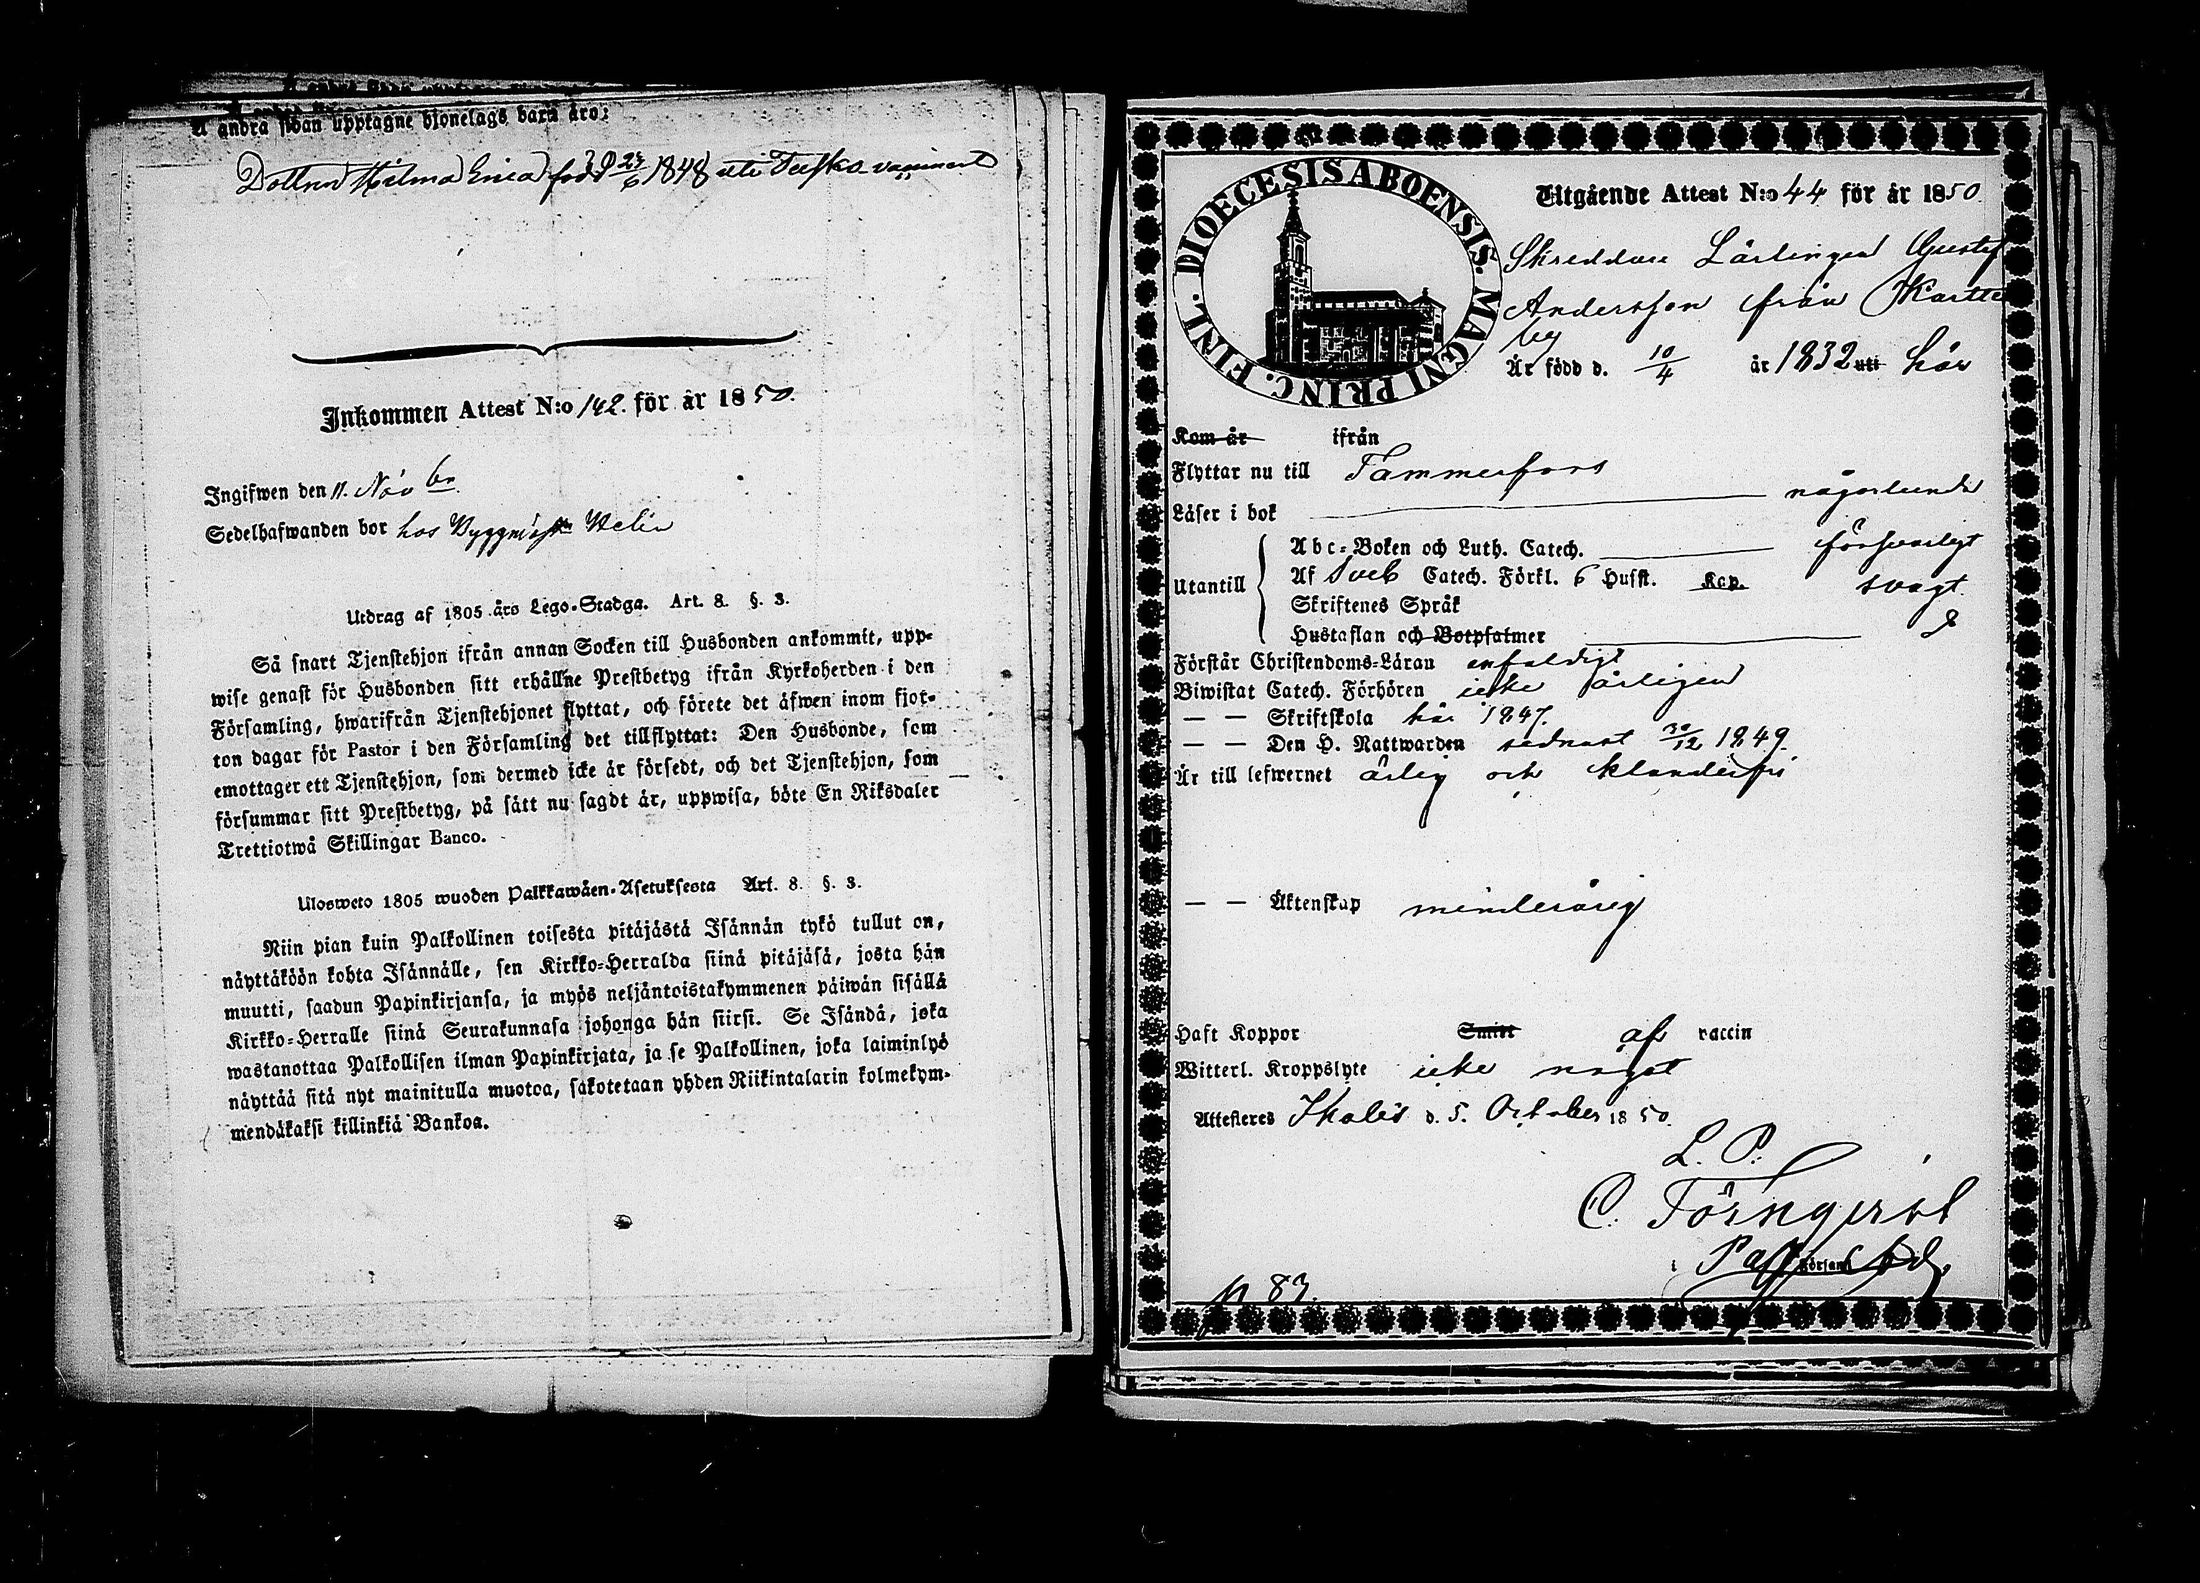 å andra sidan upptagne hjonelags barn äro:
Dottren Hilma Erica född d 23/6 1848 uti Teisko vaccinerad
Inkommen Attest N:o 142. för år 1850.
Ingifwen den 11. Novbr
Sedelhafwanden bor hos Byggmäst Helin
Utdrag af 1805 års Lego-Stadga. Art. 8. §. 3.
Så snart Tjenstehjon ifrån annan Socken till Husbonden ankommit, upp-
wise genast för Husbonden sitt erhållne Prestbetyg ifrån Kyrkoherden i den
Församling, hwarifrån Tjenstehjonet flyttat, och förete det äfwen inom fjor-
ton dagar för Pastor i den Församling det tillflyttat: Den Husbonde, som
emottager ett Tjenstehjon, som dermed icke är försedt, och det Tjenstehjon, som
försummar sitt Prestbetyg, på sätt nu sagdt är, uppwisa, böte En Riksdaler
Trettiotwå Skillingar Banco.
Ulosweto 1805 wuoden Palkkawäen-Asetuksesta Art. 8. §. 3.
Niin pian kuin Palkollinen toisesta pitäjästä Isännän tykö tullut on,
näyttäköön kohta Isännälle, sen Kirkko-Herralda siinä pitäjäsä, josta hän
muutti, saadun Papinkirjansa, ja myös neljäntoistakymmenen päiwän sisällä
Kirkko-Herralle siinä Seurakunnasa johonga hän siirsi. Se Isändä, joka
wastanottaa Palkollisen ilman Papinkirjata, ja se Palkollinen, joka laiminlyö
näyttää sitä nyt mainitulla muotoa, sakotetaan yhden Riikintalarin kolmekym-
mendäkaksi killinkiä Bankoa.
DIOECESIS ABOENSIS. MAGNI PRINC. FINL.
Utgående Attest N:o 44 för år 1850.
Skreddare Lärlingen Gustaf
Andersson från Kartte
by
Är född d. 10/4 år 1832 uti här
Kom år ifrån
Flyttar nu till Tammerfors
Läser i bok någorlunda
Utantill
Abc-Boken och Luth. Catech. försvarligt
Af Sveb Catech. Förkl. 6 Hufst. Kap. svagt.
Skriftenes Språk
Hustaflan och Botpsalmer
Förstår Christendoms-Läran enfaldigt
Biwistat Catech. Förhören icke årligen
— — Skriftskola här 1847.
— — Den H. Nattwarden sednast 30/12 1849.
Är till lefwernet ärlig och klanderfri
— — Äktenskap minderårig
Haft Koppor Smitt af vaccin
Witterl. Kroppslyte icke något
Attesteres Ikalis d. 5. October 1850.
L. P.
C. Törnqvist
p 83.